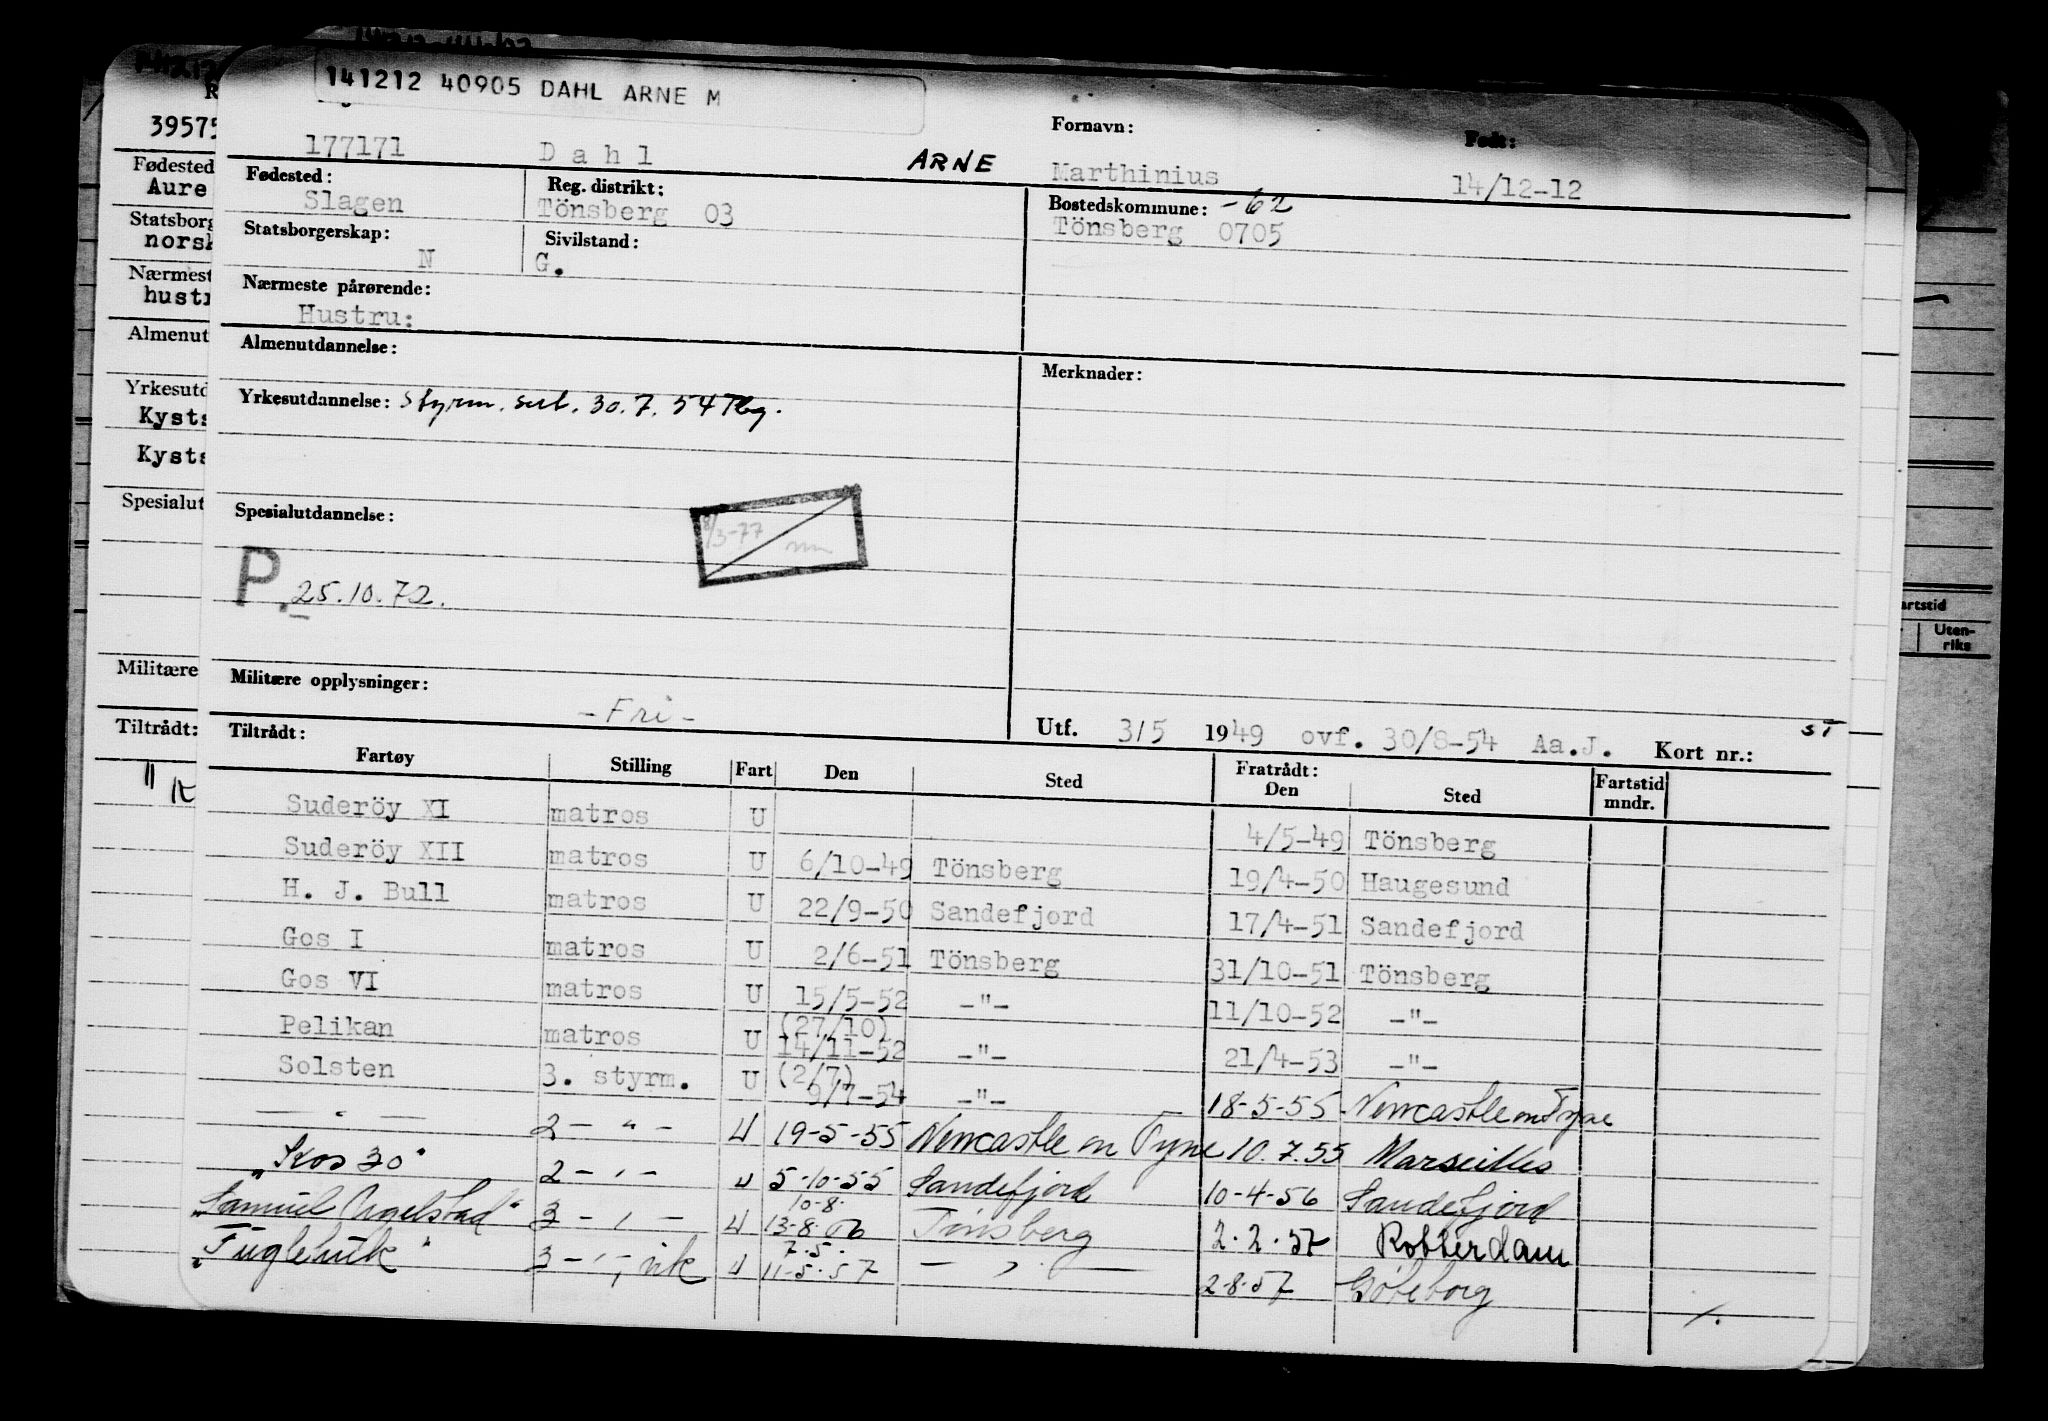 141212 40905 DAHL ARNE M
Fornavn: Født:
177171 Dahl ARNE Marthinius 14/12-12
Fødested: Reg. distrikt: Bostedskommune: -62
Slagen Tönsberg 03 Tönsberg 0705
Statsborgerskap: Sivilstand:
N G.
Nærmeste pårørende:
Hustru:
Almenutdannelse: Merknader:
Yrkesutdannelse: Styrm. sert. 30.7.54 Tbg.
Spesialutdannelse:
8/3-77
P. 25.10.72.
Militære opplysninger:
-Fri-
Utf. 3/5 1949 ovf. 30/8-54 Aa.J. Kort nr.: ST
Tiltrådt: Fratrådt:
Fartøy Stilling Fart Den Sted Den Sted Fartstid mndr.
Suderöy XI matros U 4/5-49 Tönsberg
Suderöy XII matros U 6/10-49 Tönsberg 19/4-50 Haugesund
H. J. Bull matros U 22/9-50 Sandefjord 17/4-51 Sandefjord
Gos I matros U 2/6-51 Tönsberg 31/10-51 Tönsberg
Gos VI matros U 15/5-52 -"- 11/10-52 -"-
Pelikan matros U (27/10) 14/11-52 -"- 21/4-53 -"-
Solsten 3. styrm. U (2/7) 9/7-54 -"- 18-5-55 Newcastle on Tyne
— " — 2 - " - U 19-5-55 Newcastle on Tyne 10.7.55 Marseilles
"Kos 20" 2 - " - U 5-10-55 Sandefjord 10-4-56 Sandefjord
"Samuel Ugelstad" 3 - " - U 10-8. 13-8.56 Tönsberg 2.2.57 Rotterdam
"Fuglehuk" 3 - " - U 7.5. 11-5.57 — " — 2-8-57 Göteborg
39575
Fødested
Aure
Statsborg
norsk
Nærmest
hustr
Almenut
Yrkesutd
Kysts
Kysts
Spesialut
Militære
Tiltrådt:
artstid
Uten-
riks